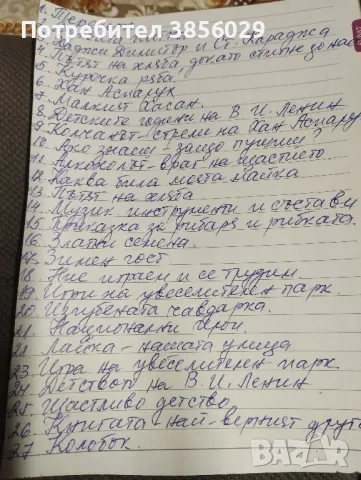 Потребител 3856259
3. Хаджи Димитър и Ст. Караджа
4. Пътят на хляба, докато стигне до нас
5. Курочка ряба.
6. Хан Аспарух
7. Малкият Хасан.
8. Детските години на В. И. Ленин
9. Колчанът - стрели на Хан Аспарух
10. Ако знаеш - защо пушиш?
11. Алкохолът - враг на щастието.
12. Каква била моята майка
13. Пътят на хляба
14. Музик. инструменти и състави
15. Приказка за рибаря и рибката.
16. Златни семена.
17. Зимен гост.
18. Ние играем и се трудим.
19. Игри на увеселителен парк.
20. Изгубената чавдарка.
21. Национални герои.
22. Лайка - нашата улица
23. Игра на увеселителен парк.
24. Детството на В. И. Ленин
25. Щастливо детство
26. Книгата най-верният друг
27. Колобок.
bazar